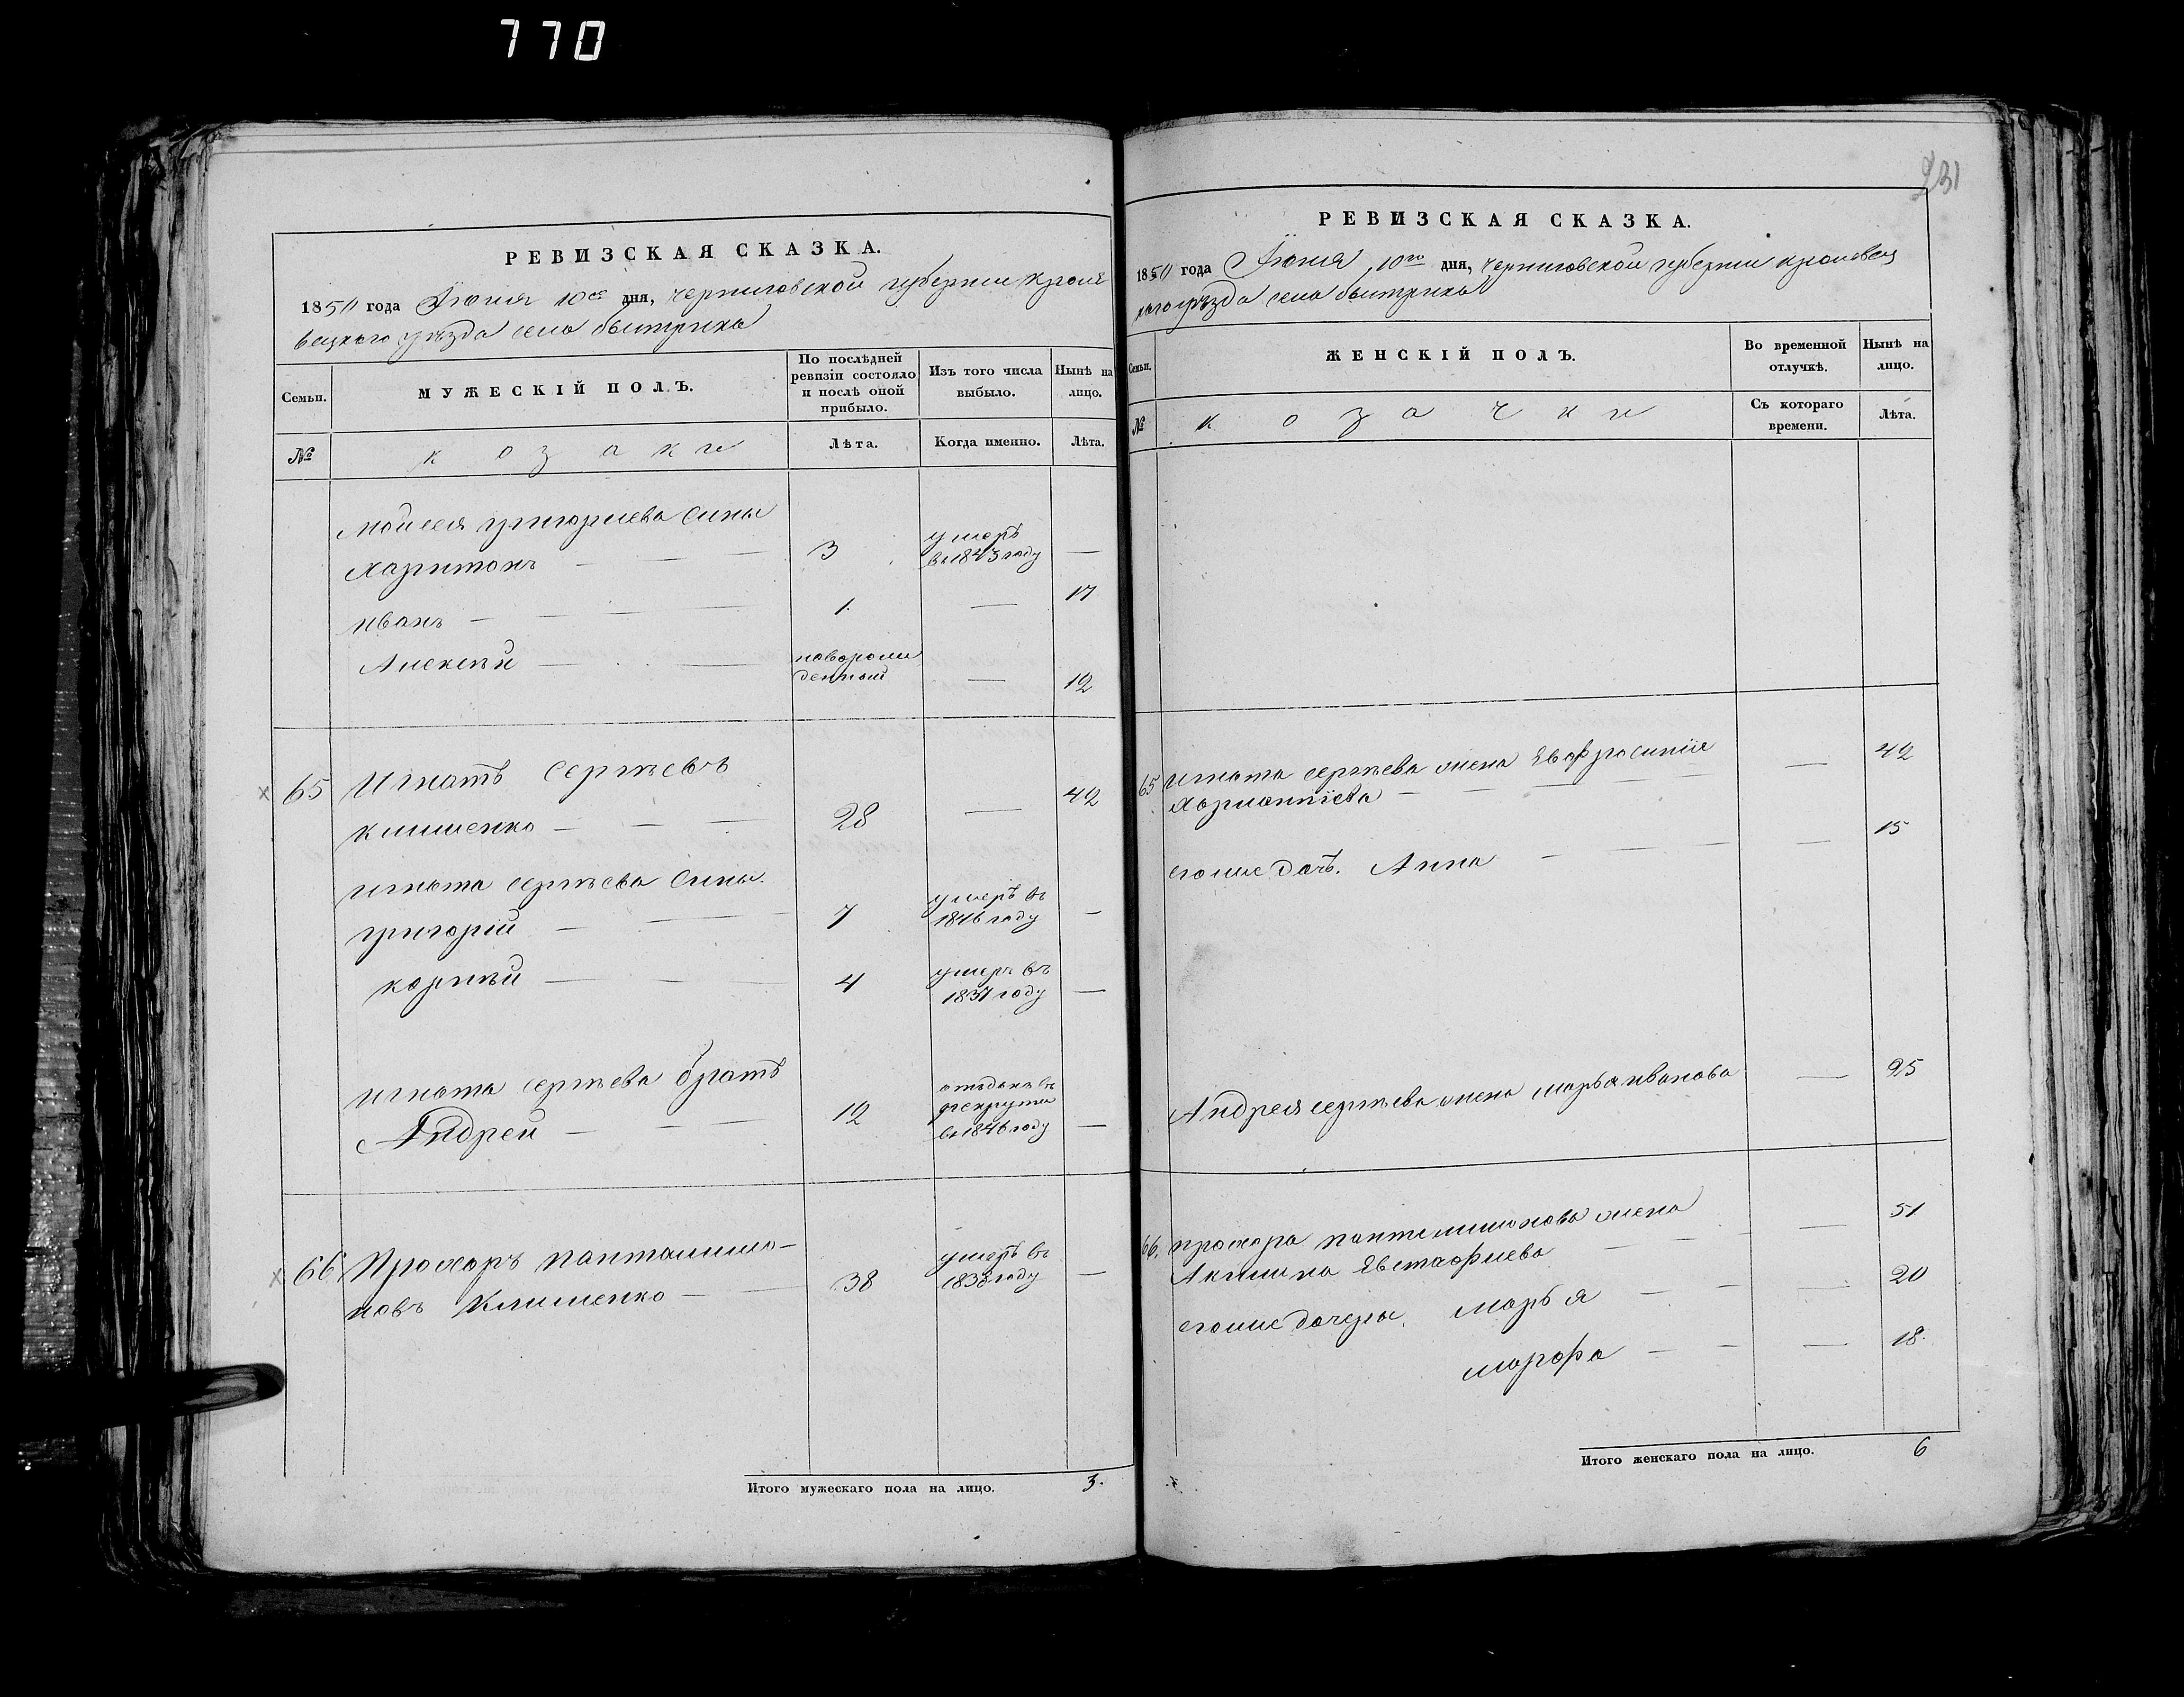 770
231
РЕВИЗСКАЯ СКАЗКА.
1850 года Іюня 10го дня, Черниговской губерніи Кроле
вецкаго уѣзда села быстрика
Семьи.
МУЖЕСКІЙ ПОЛЪ.
По послѣдней ревизіи состояло и послѣ оной прибыло.
Изъ того числа выбыло.
Нынѣ на лицо.
№
козаки
Лѣта.
Когда именно.
Лѣта.
Мойсея григориева сыны
харитонъ — 3 умеръ въ 1843 году —
иванъ — 1. — 17
Алексѣй — новорож денный — 12
65 Игнатъ сергѣевъ
клименко — 28 — 42
игната сергѣева сыны.
григорій — 7 умеръ въ 1846 году —
корнѣй — 4 умеръ въ 1837 году —
игната сергѣева братъ
Андрей — 12 отъданъ въ рекруты въ 1846 году —
66 Прохоръ пантелимо-
новъ Клименко — 38 умеръ въ 1838 году —
Итого мужескаго пола на лицо. 3.
РЕВИЗСКАЯ СКАЗКА.
1850 года Іюня 10го дня, черниговской губерніи кролевец
каго уѣзда села быстрика
Семьи.
ЖЕНСКІЙ ПОЛЪ.
Во временной отлучкѣ.
Нынѣ на лицо.
№
козачки
Съ котораго времени.
Лѣта.
65 игната сергѣева жена Евфросинія — 42
его же дочь. Анна — 15
Андрея сергѣева жена марья иванова — 25
66. прохора пантелимонова жена — 51
Акилина Евстафиева
его же дочери. марья — 20
марфа — 18.
Итого женскаго пола на лицо. 6